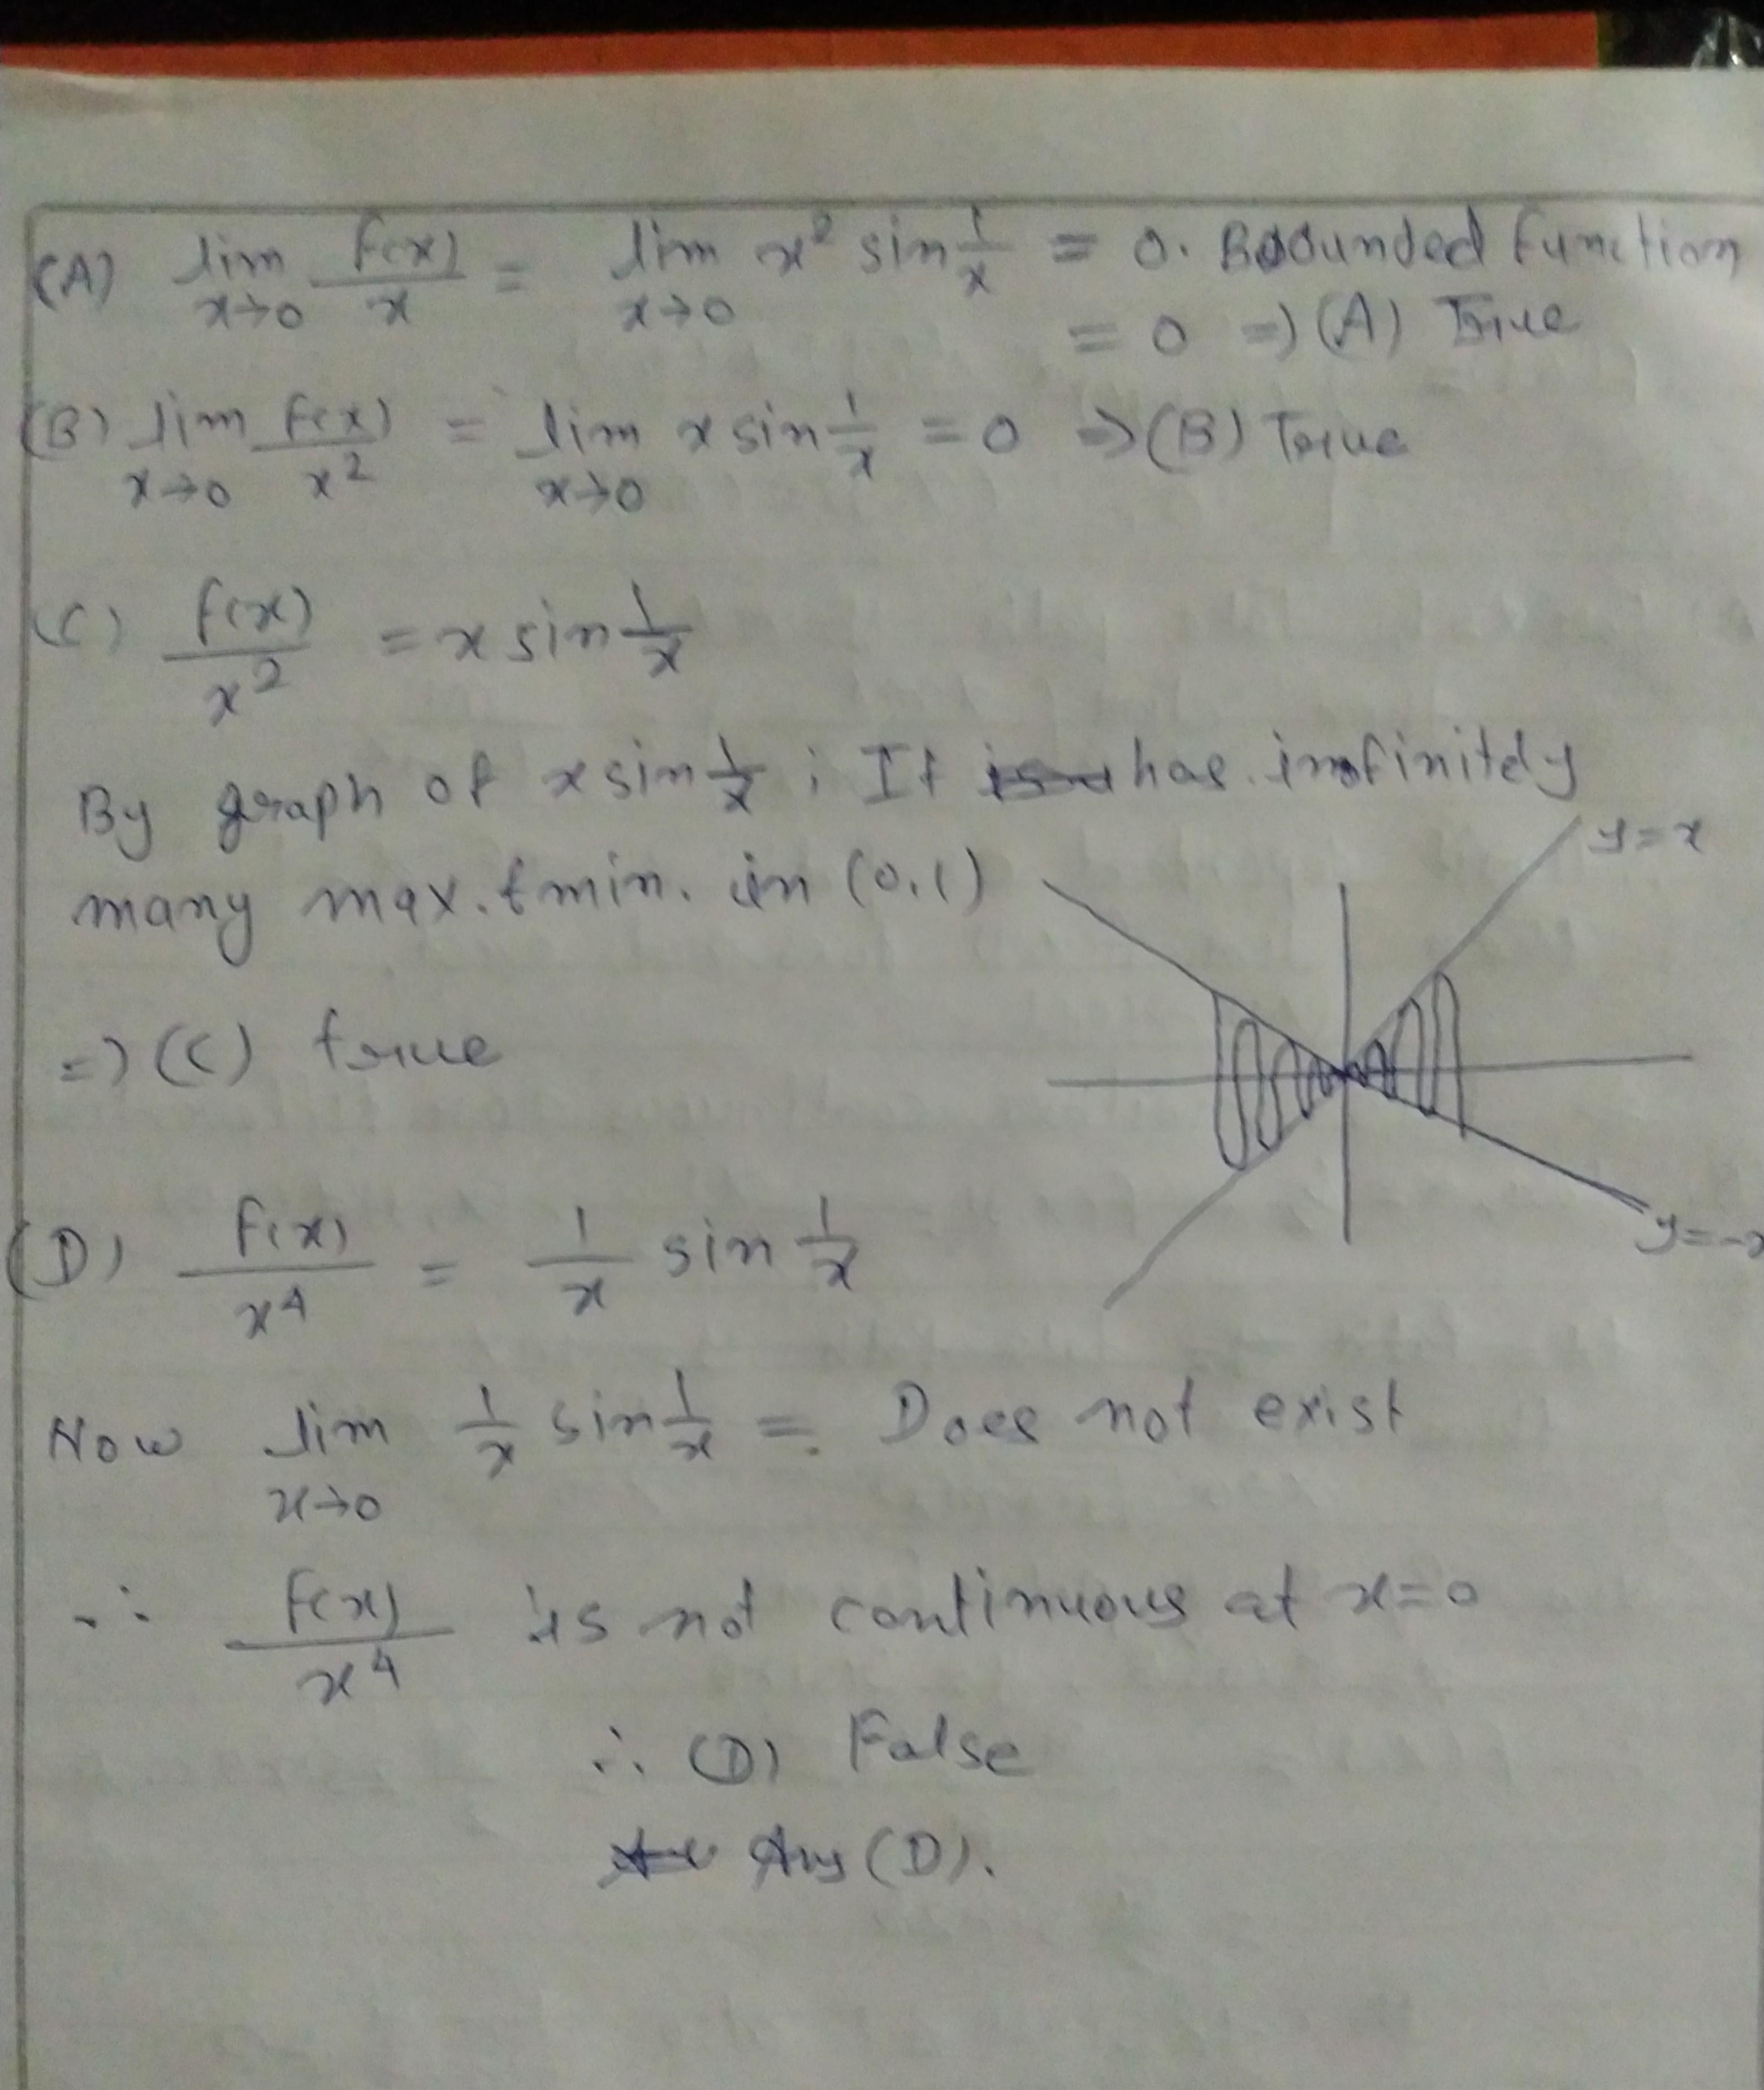 (A) lim x→0 f(x)/x = lim x→0 x² sin 1/x = 0. Boounded function
= 0 => (A) True
(B) lim x→0 f(x)/x² = lim x→0 x sin 1/x = 0 => (B) True
(C) f(x)/x² = x sin 1/x
By graph of x sin 1/x ; It has infinitely
y=x
many max. & min. in (0,1)
=> (C) true
y=-x
(D) f(x)/x⁴ = 1/x sin 1/x
Now lim x→0 1/x sin 1/x = Does not exist
∴ f(x)/x⁴ is not continuous at x=0
∴ (D) False
Ans (D).